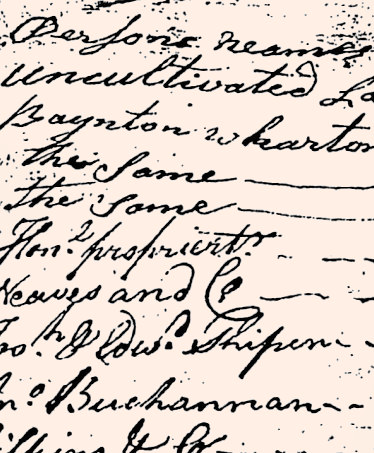 Persons neames
uncultivated La
Baynton wharton
the Same
the Same
Hon.l propriert.r
Neaves and Co
Jos.h & Edw.d Shipen
Jn.o Buchannan